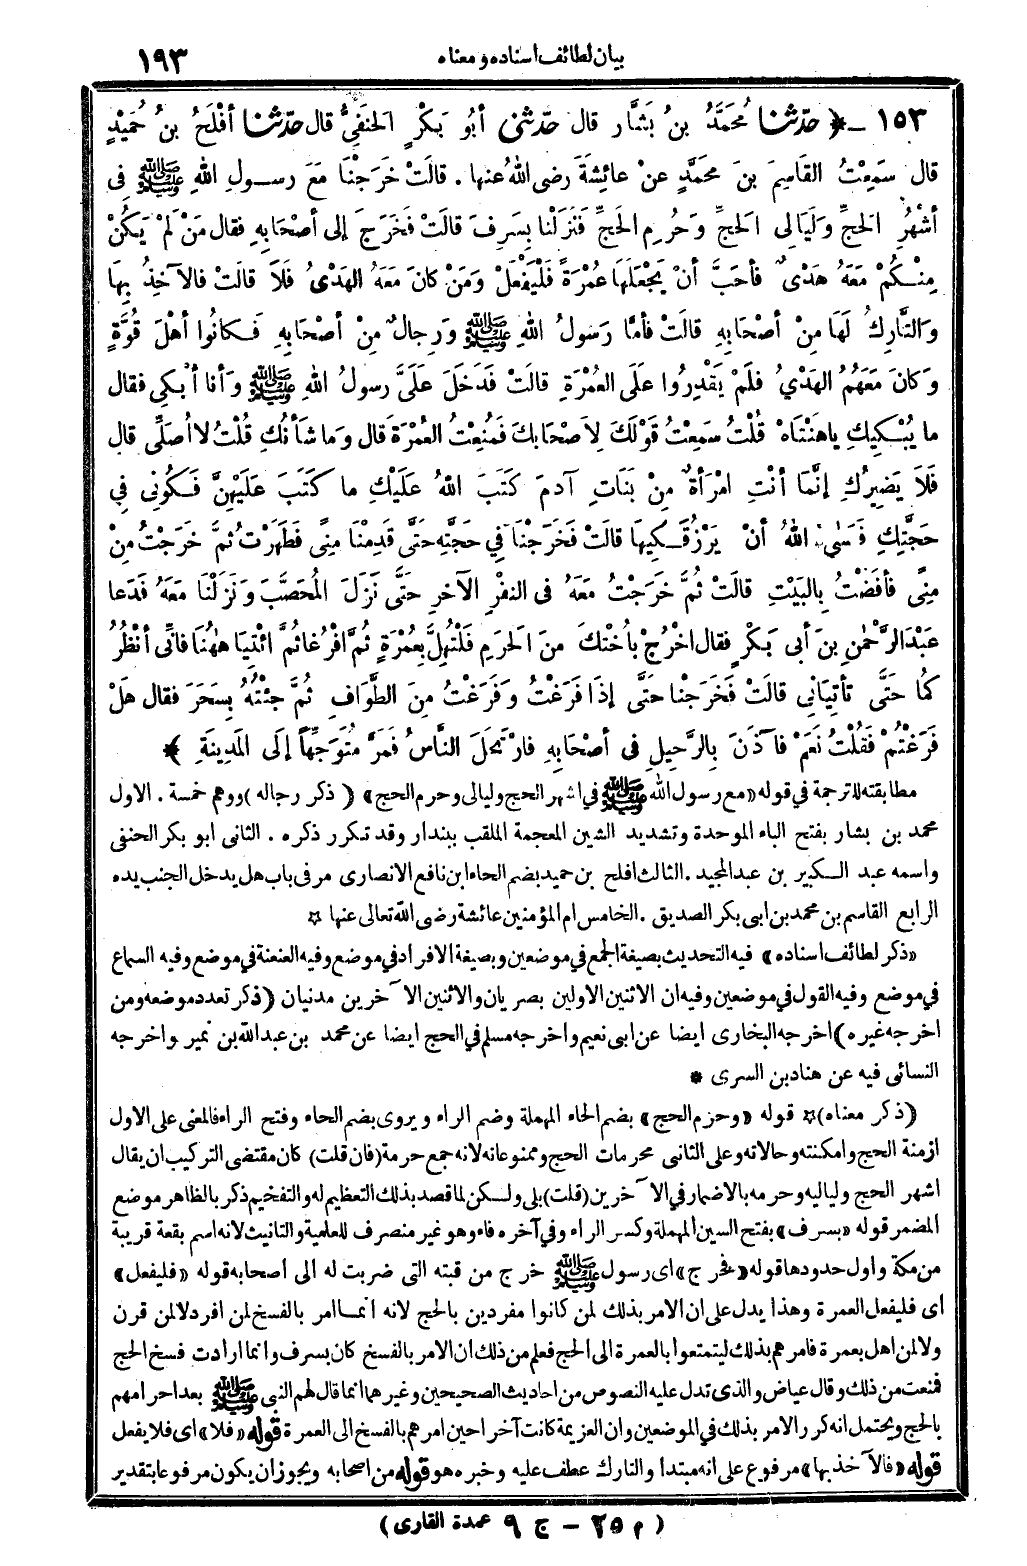 بيان لطائف اسناده ومعناه ١٩٣
١٥٣ ـ ﴿ حدّثنا مُحَمَّدُ بنُ بَشَّار قال حدّثني أبُو بَكْرٍ الحَنَفِيُّ قال حدّثنا أفْلَحُ بنُ حُمَيْدٍ
قال سَمِعْتُ القَاسِمَ بنَ محَمَّدٍ عنْ عائِشَةَ رضى اللهُ عنها . قالَتْ خَرَجْنَا مَعَ رسولِ اللهِ ﷺ فِى
أشْهُرِ الحَجِّ وَلَيَالِى الحَجِّ وَحُرُمِ الحَجِّ فَنَزَلْنا بِسَرِفَ قالَتْ فَخَرَجَ إلى أصْحَابِهِ فقال مَنْ لَمْ يَكُنْ
مِنْكُمْ مَعَهُ هَدْىٌ فأحَبَّ أنْ يَجْعَلَهَا عُمْرَةً فَلْيَفْعَلْ وَمَنْ كانَ مَعَهُ الهَدْىُ فَلَا قالَتْ فالآخِذُ بِهَا
وَالتَّارِكُ لَهَا مِنْ أصْحَابِهِ قالَتْ فأمَّا رَسولُ اللهِ ﷺ وَرِجالٌ مِنْ أصْحَابِهِ فَكانُوا أهْلَ قُوَّةٍ
وَكانَ مَعَهُمُ الهَدْيُ فلَمْ يَقْدِرُوا علَى العُمْرَةِ قالَتْ فَدَخَلَ عَلَىَّ رسولُ اللهِ ﷺ وَأنا أبْكِى فقال
ما يُبْكِيكِ ياهَنْتَاهْ قُلْتُ سَمِعْتُ قَوْلَكَ لِأصْحَابِكَ فَمُنِعْتُ العُمْرَةَ قال وَما شَأنُكِ قُلْتُ لاأُصَلِّى قال
فَلَا يَضِيرُكِ إنَّمَا أنْتِ امْرَأةٌ مِنْ بَنَاتِ آدمَ كَتَبَ اللهُ عَلَيْكِ ما كَتَبَ عَلَيْهِنَّ فَكُونِى فِي
حَجَّتِكِ فَعَسَى اللهُ أنْ يَرْزُقَكِيهَا قالَتْ فَخَرَجْنَا فِي حَجَّتِهِ حَتَّى قَدِمْنَا مِنًى فَطَهَرْتُ ثُمَّ خَرَجْتُ مِنْ
مِنًى فأفَضْتُ بِالبَيْتِ قالَتْ ثُمَّ خَرَجْتُ مَعَهُ فى النفْرِ الآخِرِ حَتَّى نَزَلَ المُحَصَّبَ وَنَزَلْنَا مَعَهُ فَدَعا
عَبْدَالرَّحْمٰنِ بنَ أبى بَكْرٍ فقال اخْرُجْ بأُخْتِكَ منَ الحَرَمِ فَلْتُهِلَّ بِعُمْرَةٍ ثُمَّ افْرُغا ثُمَّ ائْتِيَا هٰهُنا فانِّى أنْظُرُ
كُمَا حَتَّى تأتِيَانِي قالَتْ فَخَرَجْنا حَتَّى إذَا فَرَغْتُ وَفَرَغْتُ مِنَ الطَّوَافِ ثُمَّ جِئْتُهُ بِسَحَرَ فقال هَلْ
فَرَغْتُمْ فَقُلْتُ نَعَمْ فآذَنَ بِالرَّحِيلِ فى أصْحَابِهِ فارْتَحَلَ النَّاسُ فَمَرَّ مُتَوَجِّهاً إلَى المَدِينَةِ ﴾
مطابقته للترجمة في قوله «مع رسول الله ﷺ في اشهر الحج وليالى وحرم الحج» ( ذكر رجاله ) وهم خمسة . الاول
محمد بن بشار بفتح الباء الموحدة وتشديد الشين المعجمة الملقب ببندار وقد تكرر ذكره . الثانى ابو بكر الحنفى
واسمه عبد الكبير بن عبد المجيد . الثالث افلح بن حميد بضم الحاء ابن نافع الانصارى مر فى باب هل يدخل الجنب يده
الرابع القاسم بن محمد بن ابى بكر الصديق . الخامس ام المؤمنين عائشة رضى الله تعالى عنها ✩
«ذكر لطائف اسناده» فيه التحديث بصيغة الجمع في موضعين وبصيغة الافراد في موضع وفيه العنعنة في موضع وفيه السماع
في موضع وفيه القول في موضعين وفيه ان الاثنين الاولين بصريان والاثنين الآخرين مدنيان ( ذكر تعدد موضعه ومن
اخرجه غيره ) اخرجه البخارى ايضا عن ابى نعيم واخرجه مسلم في الحج ايضا عن محمد بن عبد الله بن نمير واخرجه
النسائى فيه عن هناد بن السرى *
( ذكر معناه ) ✩ قوله «وحرم الحج» بضم الحاء المهملة وضم الراء ويروى بضم الحاء وفتح الراء فالمعنى على الاول
ازمنة الحج وامكنته وحالاته وعلى الثانى محرمات الحج وممنوعاته لانه جمع حرمة (فان قلت) كان مقتضى التركيب ان يقال
اشهر الحج ولياليه وحرمه بالاضمار في الآخرين (قلت) بلى ولكن لما قصد بذلك التعظيم له والتفخيم ذكر بالظاهر موضع
المضمر قوله «بسرف» بفتح السين المهملة وكسر الراء وفي آخره فاء وهو غير منصرف للعلمية والتانيث لانه اسم بقعة قريبة
من مكة واول حدودها قوله «فخرج» اى رسول ﷺ خرج من قبته التى ضربت له الى أصحابه قوله «فليفعل»
اى فليفعل العمرة وهذا يدل على ان الامر بذلك لمن كانوا مفردين بالحج لانه انما امر بالفسخ لمن افرد لا لمن قرن
ولا لمن اهل بعمرة فامرهم بذلك ليتمتعوا بالعمرة الى الحج فعلم من ذلك ان الامر بالفسخ كان بسرف وانما ارادت فسخ الحج
فمنعت من ذلك وقال عياض والذى تدل عليه النصوص من احاديث الصحيحين وغيرهما انما قال لهم النبى ﷺ بعد احرامهم
بالحج ويحتمل انه كرر الامر بذلك في الموضعين وان العزيمة كانت آخرا حين امرهم بالفسخ الى العمرة قوله «فلا» اى فلا يفعل
قوله «فالآخذ بها» مرفوع على انه مبتدا والتارك عطف عليه وخبره هو قوله من اصحابه ويجوز ان يكون مرفوعا بتقدير
( م ٢٥ – ج ٩ عمدة القارى )